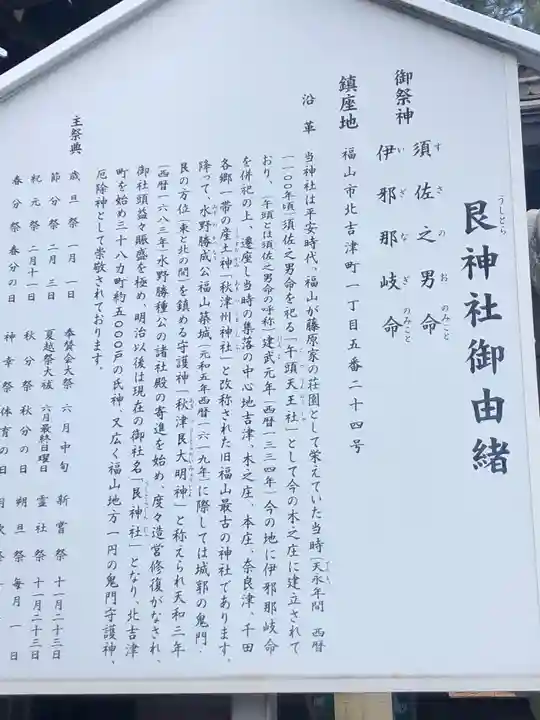 艮神社御由緒
うしとら
御祭神 須佐之男命
すさのおのみこと
伊邪那岐命
いざなぎのみこと
鎮座地 福山市北吉津町一丁目五番二十四号
沿革 当神社は平安時代、福山が藤原家の荘園として栄えていた当時(天永年間 西暦
一一〇〇年頃)須佐之男命を祀る「牛頭天王社」として今の木之庄に建立されて
おり、(牛頭とは須佐之男命の呼称)建武元年(西暦一三三四年)今の地に伊邪那岐命
を併祀の上、遷座し当時の集落の中心地吉津、木之庄、本庄、奈良津、千田
各郷一帯の産土神「秋津州神社」と改称された旧福山最古の神社であります。
降って、水野勝成公福山築城(元和五年西暦一六一九年)に際しては城郭の鬼門・
艮の方位(東と北の間)を鎮める守護神「秋津艮大明神」と称えられ天和三年
(西暦一六八三年)水野勝種公の諸社殿の寄進を始め、度々造営修復がなされ、
御社頭益々賑盛を極め、明治以後は現在の御社名「艮神社」となり、北吉津
町を始め三十八カ町約五〇〇〇戸の氏神、又広く福山地方一円の鬼門守護神、
厄除神として崇敬されております。
主祭典
歳旦祭 一月一日 奉賛会大祭 六月中旬 新嘗祭 十一月二十三日
節分祭 二月三日 夏越祭大祓 六月最終日曜日 霊社祭 十一月二十三日
紀元祭 二月十一日 秋分祭 秋分の日 朔旦祭 毎月一日
春分祭 春分の日 神幸祭 体育の日